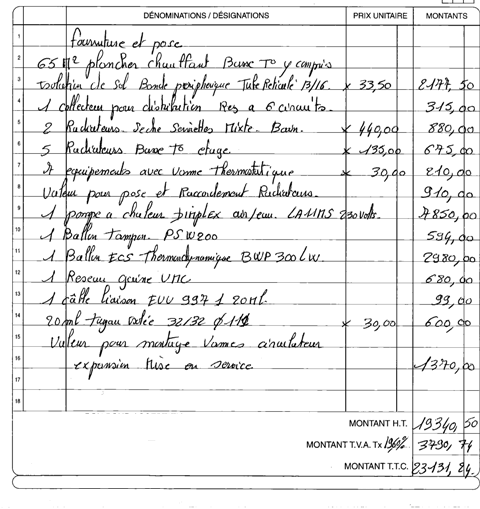 DÉNOMINATIONS / DÉSIGNATIONS PRIX UNITAIRE MONTANTS
1 fourniture et pose
2 65 M² plancher chauffant Basse T° y compris
3 Isolation de Sol Bande peripherique Tube Reticulé 13/16. x 33,50 2177,50
4 1 collecteur pour distribution Rez a 6 circuits. 315,00
5 2 Radiateurs Seche Serviettes Mixte. Bain. x 440,00 880,00
6 5 Radiateurs Basse T° etage. x 135,00 675,00
7 7 equipements avec Vanne Thermostatique x 30,00 210,00
8 Valeur pour pose et Raccordement Radiateurs. 910,00
9 1 pompe a chaleur air/eau. LA11MS 230 Volts. 7850,00
10 1 Ballon Tampon. PSW200 594,00
11 1 Ballon ECS Thermodynamique BWP 300LW. 2980,00
12 1 Reseau gaine VMC 680,00
13 1 câble liaison EVU 997 1 20Ml. 99,00
14 20ml tuyau 32/32 x 30,00 600,00
15 Valeur pour montage Vannes circulateur
16 expansion Mise en service 1370,00
17
18
MONTANT H.T. 19340,50
MONTANT T.V.A. Tx 19,6% 3790,74
MONTANT T.T.C. 23131,24.